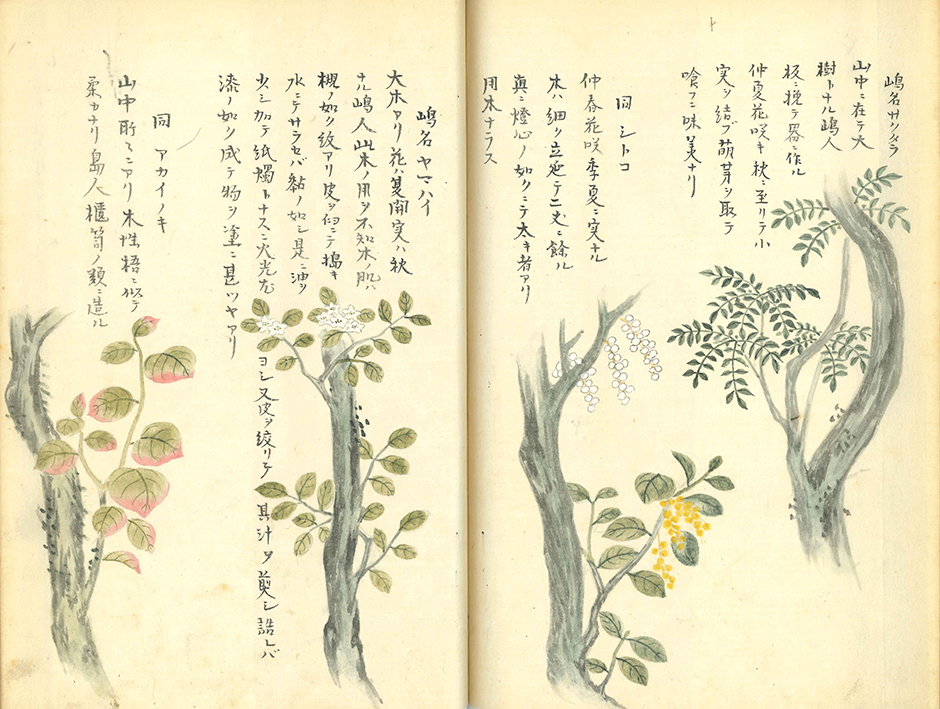 嶋名サクノクラ
山中ニ在テ大
樹トナル嶋人
板ニ挽テ器ニ作ル
仲夏花咲キ秋ニ至リテ小
実ヲ結ブ萌芽ヲ取テ
喰フニ味美ナリ
同 シトコ
仲春花咲季夏ニ実ナル
木ハ細ク立延テ二丈ニ餘ル
真ニ燈心ノ如クニテ太キ者アリ
用木ナラス
嶋名 ヤマハイ
大木アリ花ハ夏開実ハ秋
ナル嶋人此木ノ用ヲ不知木ノ肌ハ
槻ノ如ク紋アリ皮ヲ臼ニテ搗キ
水ニテサラセバ黏ノ如シ是ニ油ヲ
少シ加テ紙燭トナスニ火光尤
ヨシ又皮ヲ絞リテ其汁ヲ煎シ詰レバ
漆ノ如ク成テ物ヲ塗ニ甚ツヤアリ
同 アカイノキ
山中所々ニアリ木性梧ニ似テ
柔カナリ島人櫃笥ノ類ニ造ル